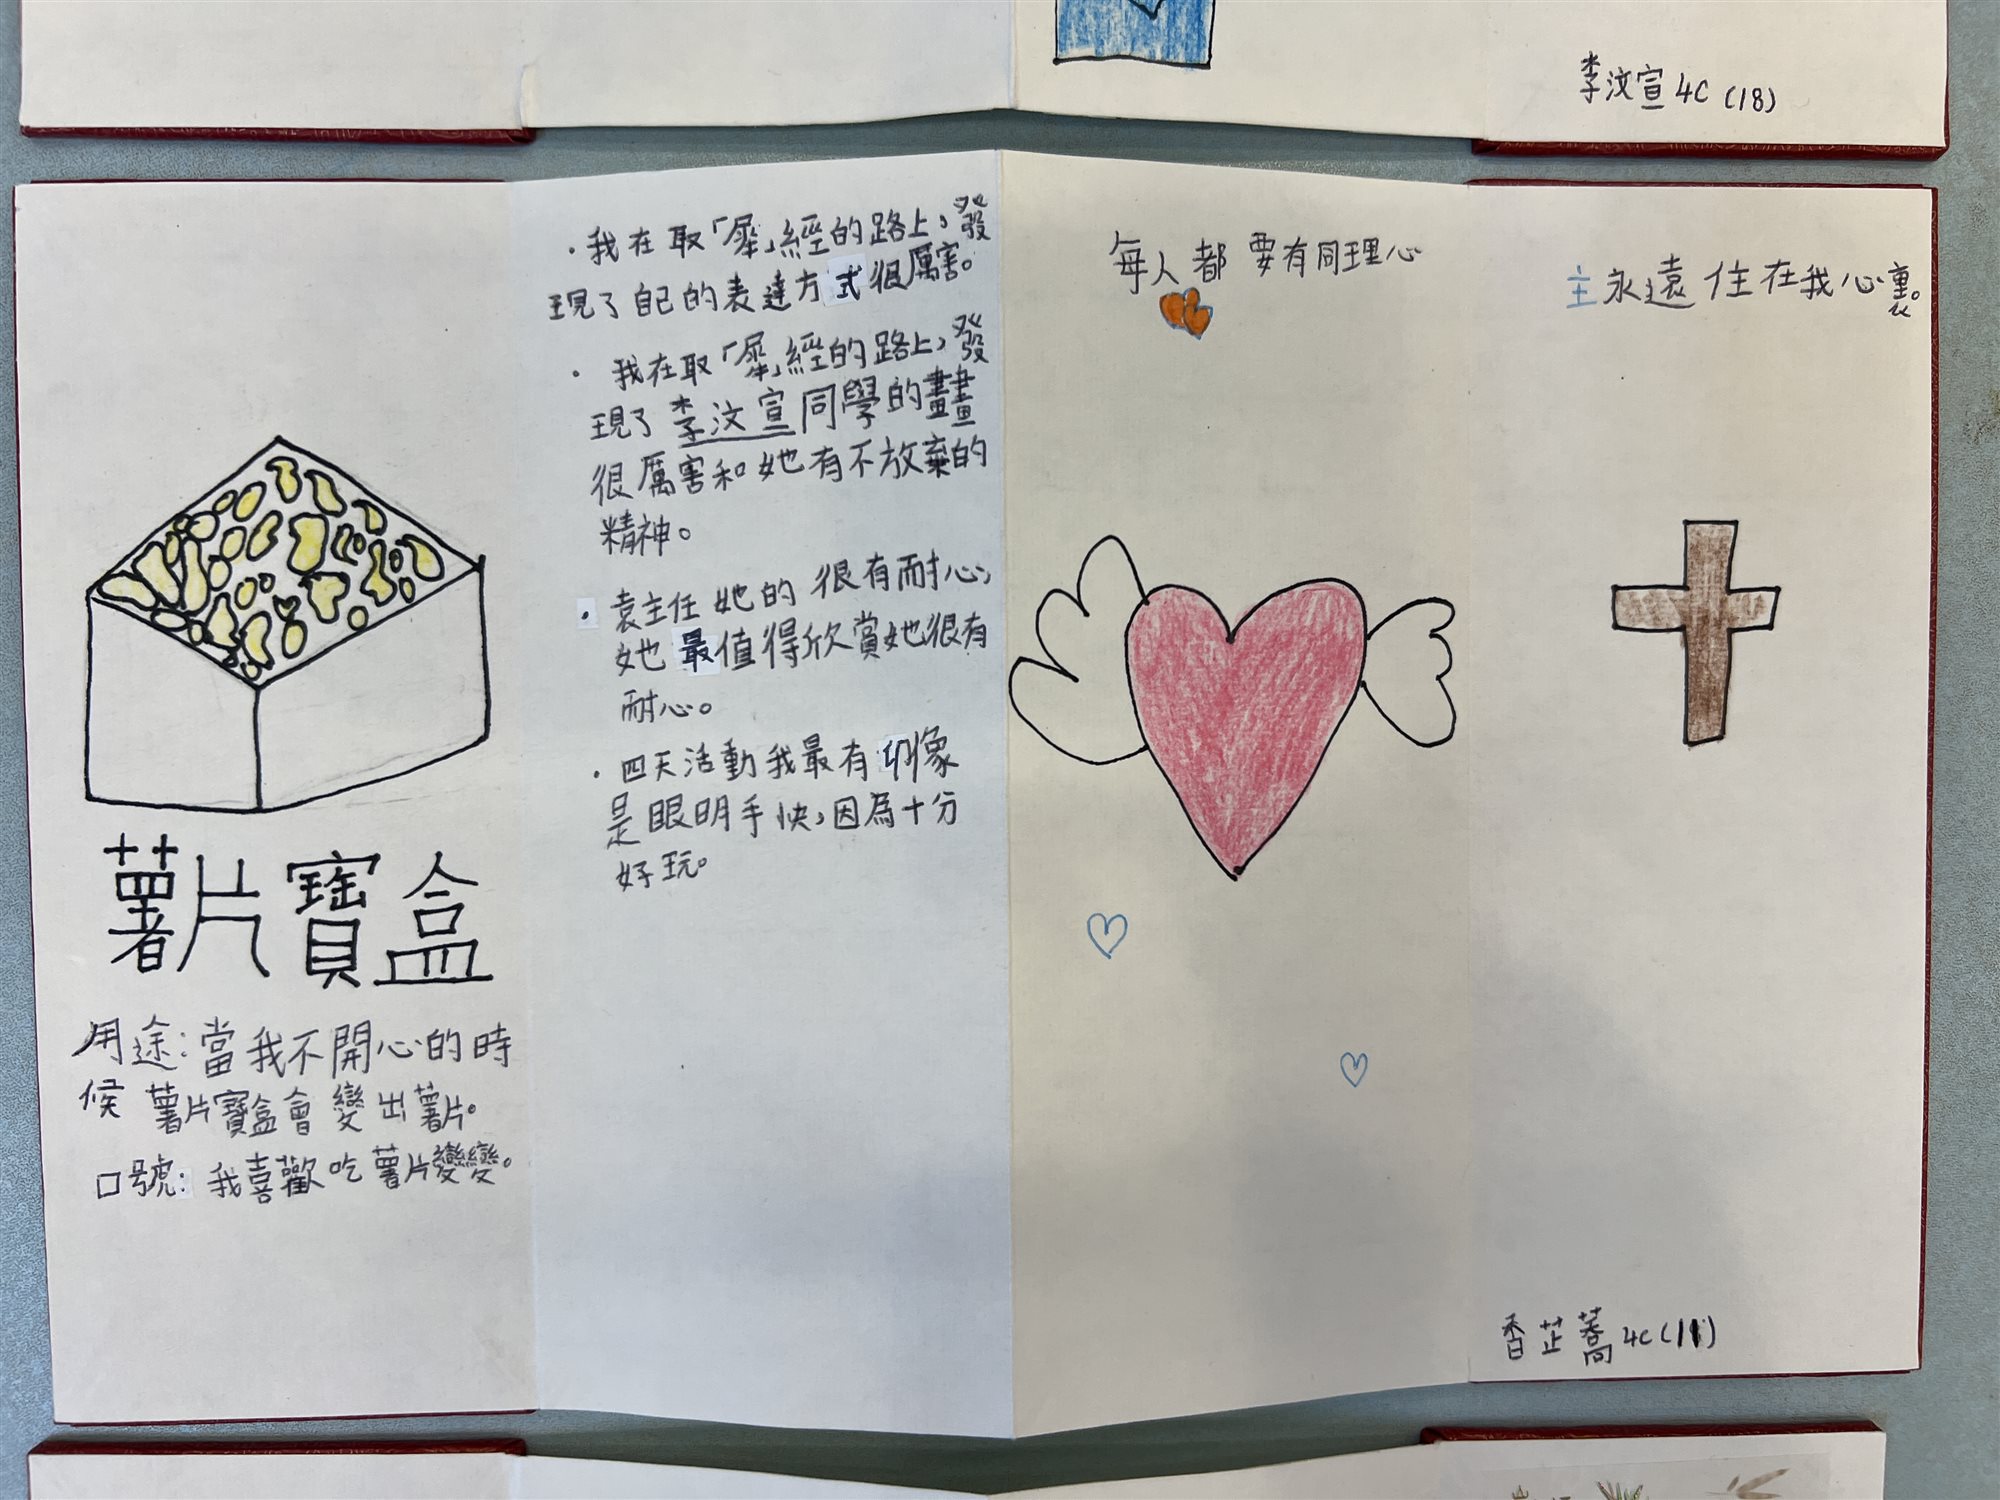 李汶宣 4C (18)
薯片寶盒
用途:當我不開心的時
候 薯片寶盒會 變出薯片。
口號:我喜歡吃薯片變變。
·我在取「犀」經的路上,發
現了自己的表達方式很厲害。
·我在取「犀」經的路上,發
現了李汶宣同學的畫畫
很厲害和她有不放棄的
精神。
·袁主任她的很有耐心,
她最值得欣賞她很有
耐心。
·四天活動我最有印像
是眼明手快,因為十分
好玩。
每人都要有同理心
主永遠住在我心裏。
香芷蕎 4C (11)